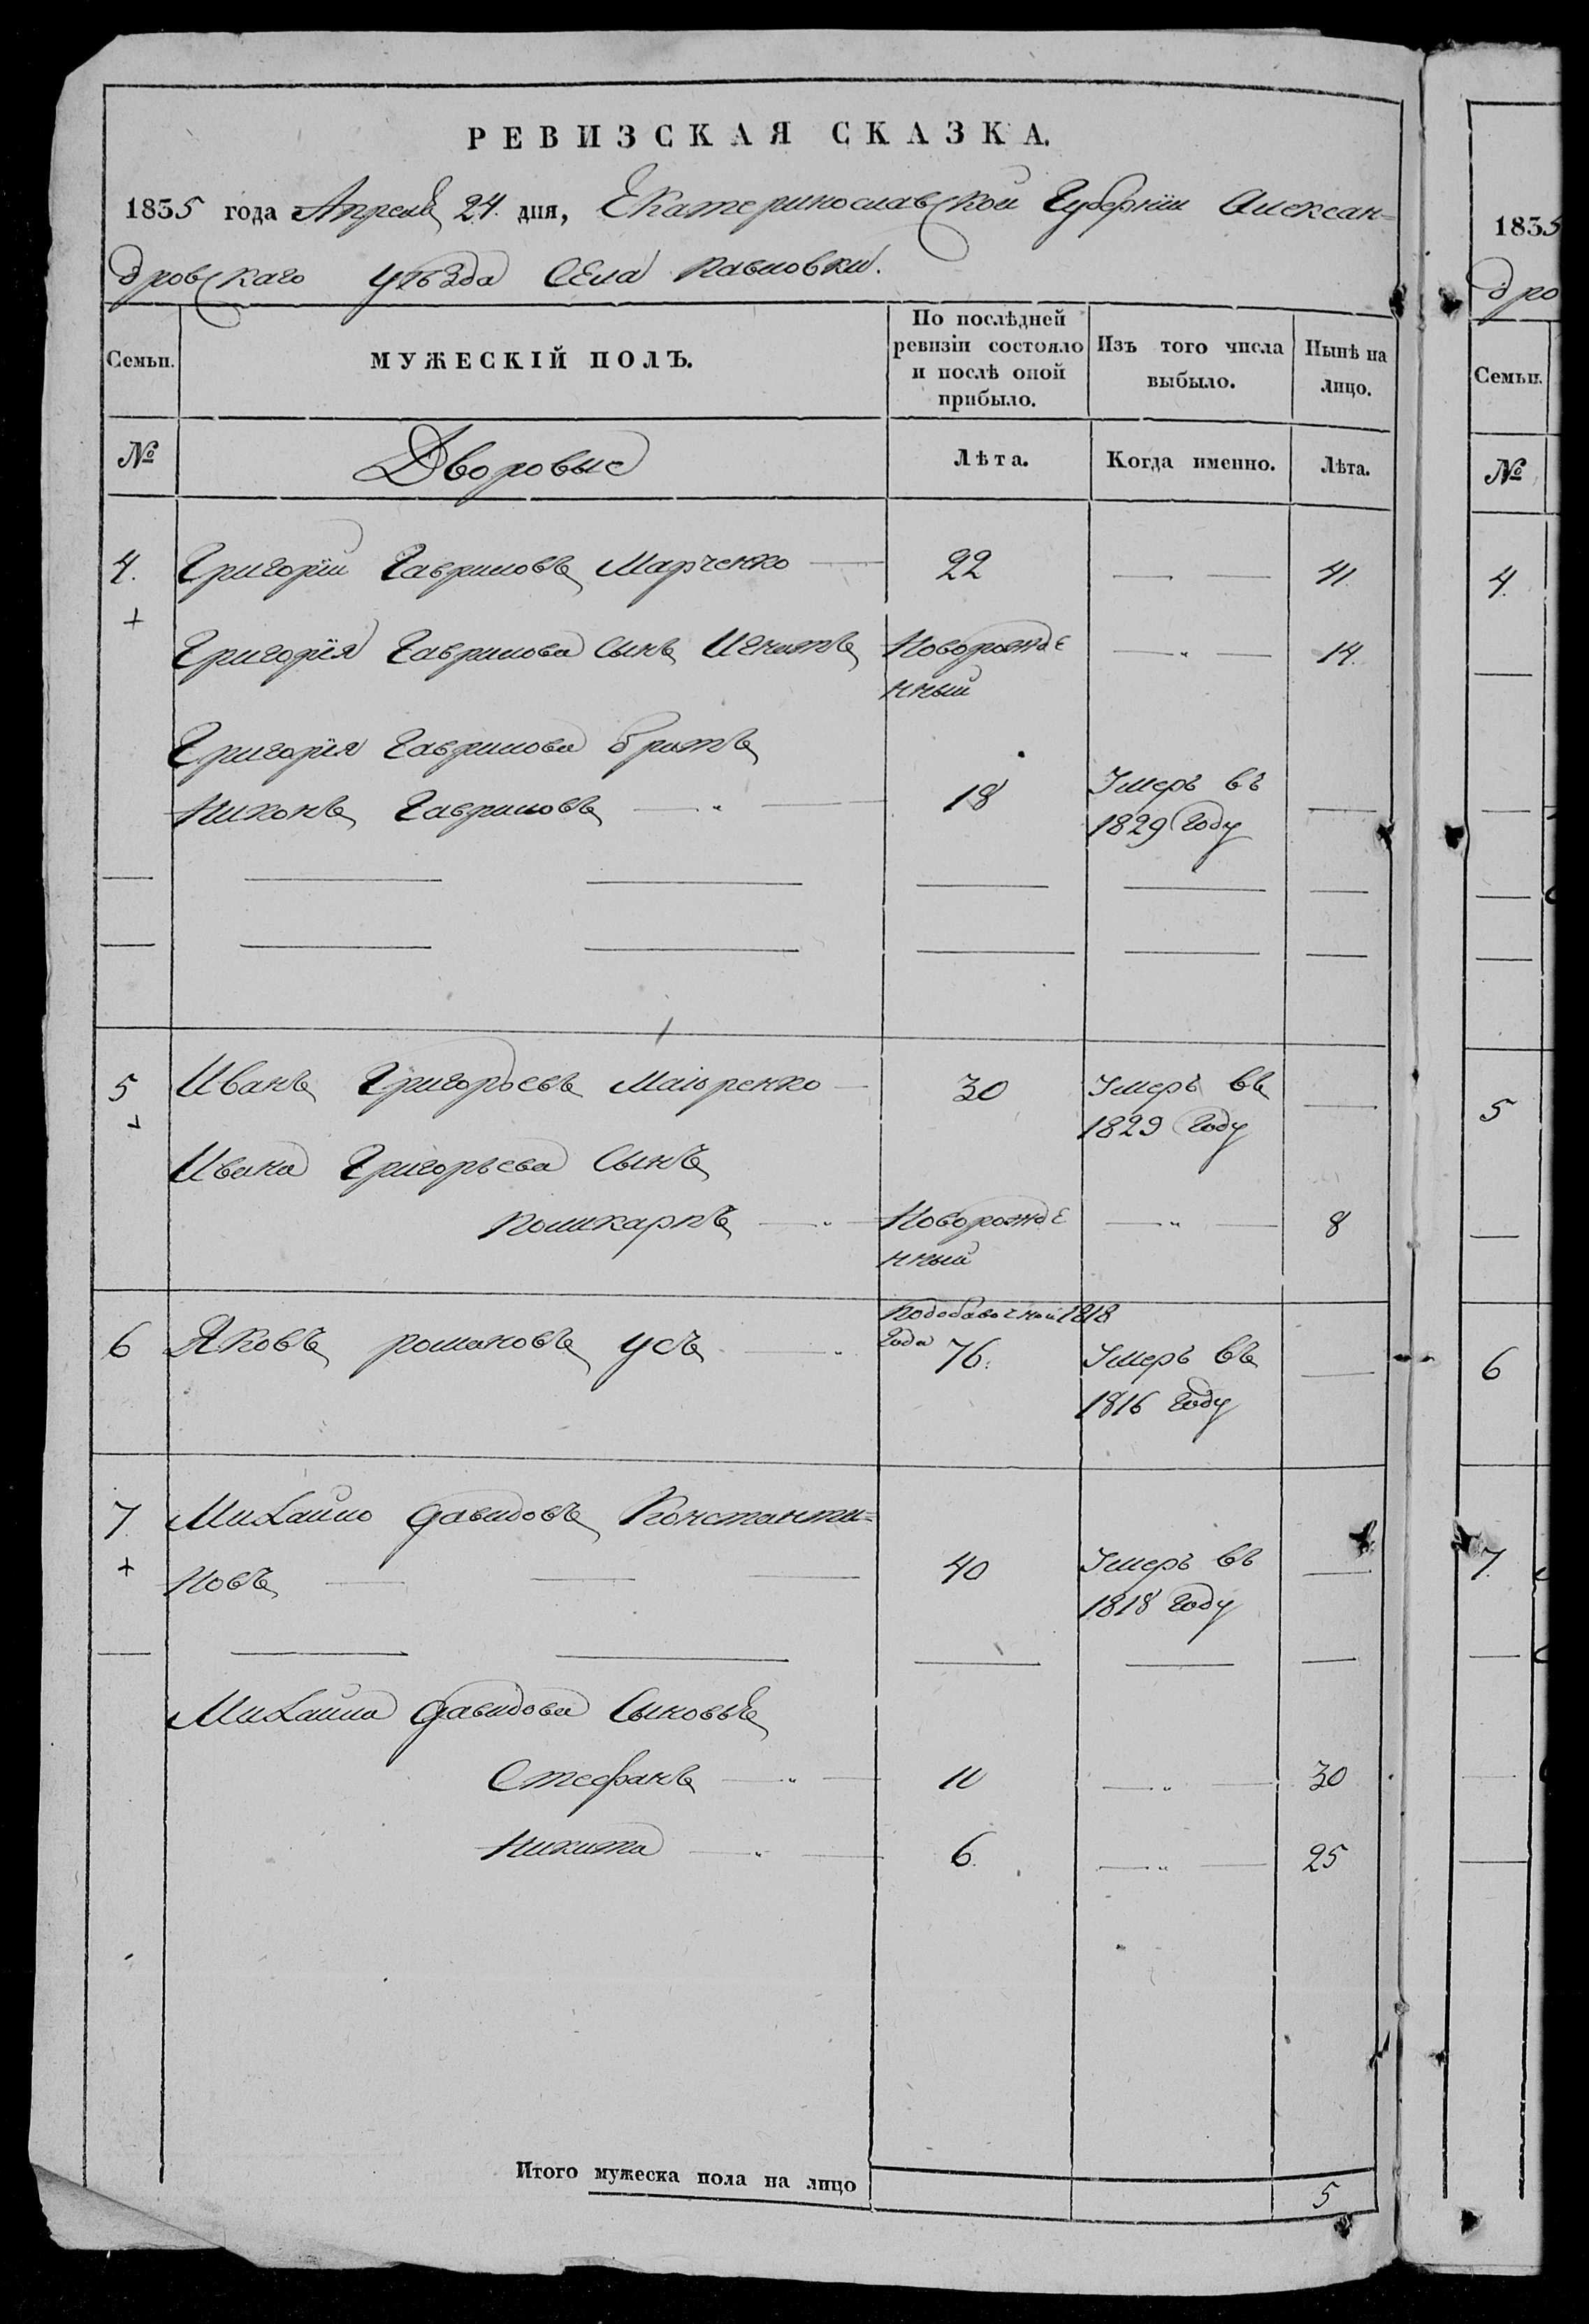 РЕВИЗСКАЯ СКАЗКА.
1835 года Апреля 24. дня, Екатеринославской Губернїи Алексан=
дровскаго уѣзда Села Павловки.
Семьи.
МУЖЕСКІЙ ПОЛЪ.
По послѣдней
ревизіи состояло
и послѣ оной
прибыло.
Изъ того числа
выбыло.
Нынѣ на
лицо.
№
Дворовые
Лѣта.
Когда именно.
Лѣта.
4. Григорїи Гавриловъ Марченко 22 41.
Григорїя Гаврилова Сынъ Игнатъ Новорожде 14.
нный
Григорїя Гаврилова братъ
Никонъ Гавриловъ 18 Умеръ въ
1829 Году
5 Иванъ Григорьевъ 30 Умеръ въ
1829 Году
Ивана Григорьева Сынъ
Поликарпъ Новорожде 8
нный
Подобавочной 1818
Года
6 Яковъ Романовъ Усъ 76. Умеръ въ
1816 Году
7. Михайло Давидовъ Константи=
новъ 40 Умеръ въ
1818 Году
Михайла Давидова Сыновья
Стефанъ 11 30
Никита 6. 25
Итого мужеска пола на лицо 5
1835
дро
Семьи.
№
4.
5
6
7.